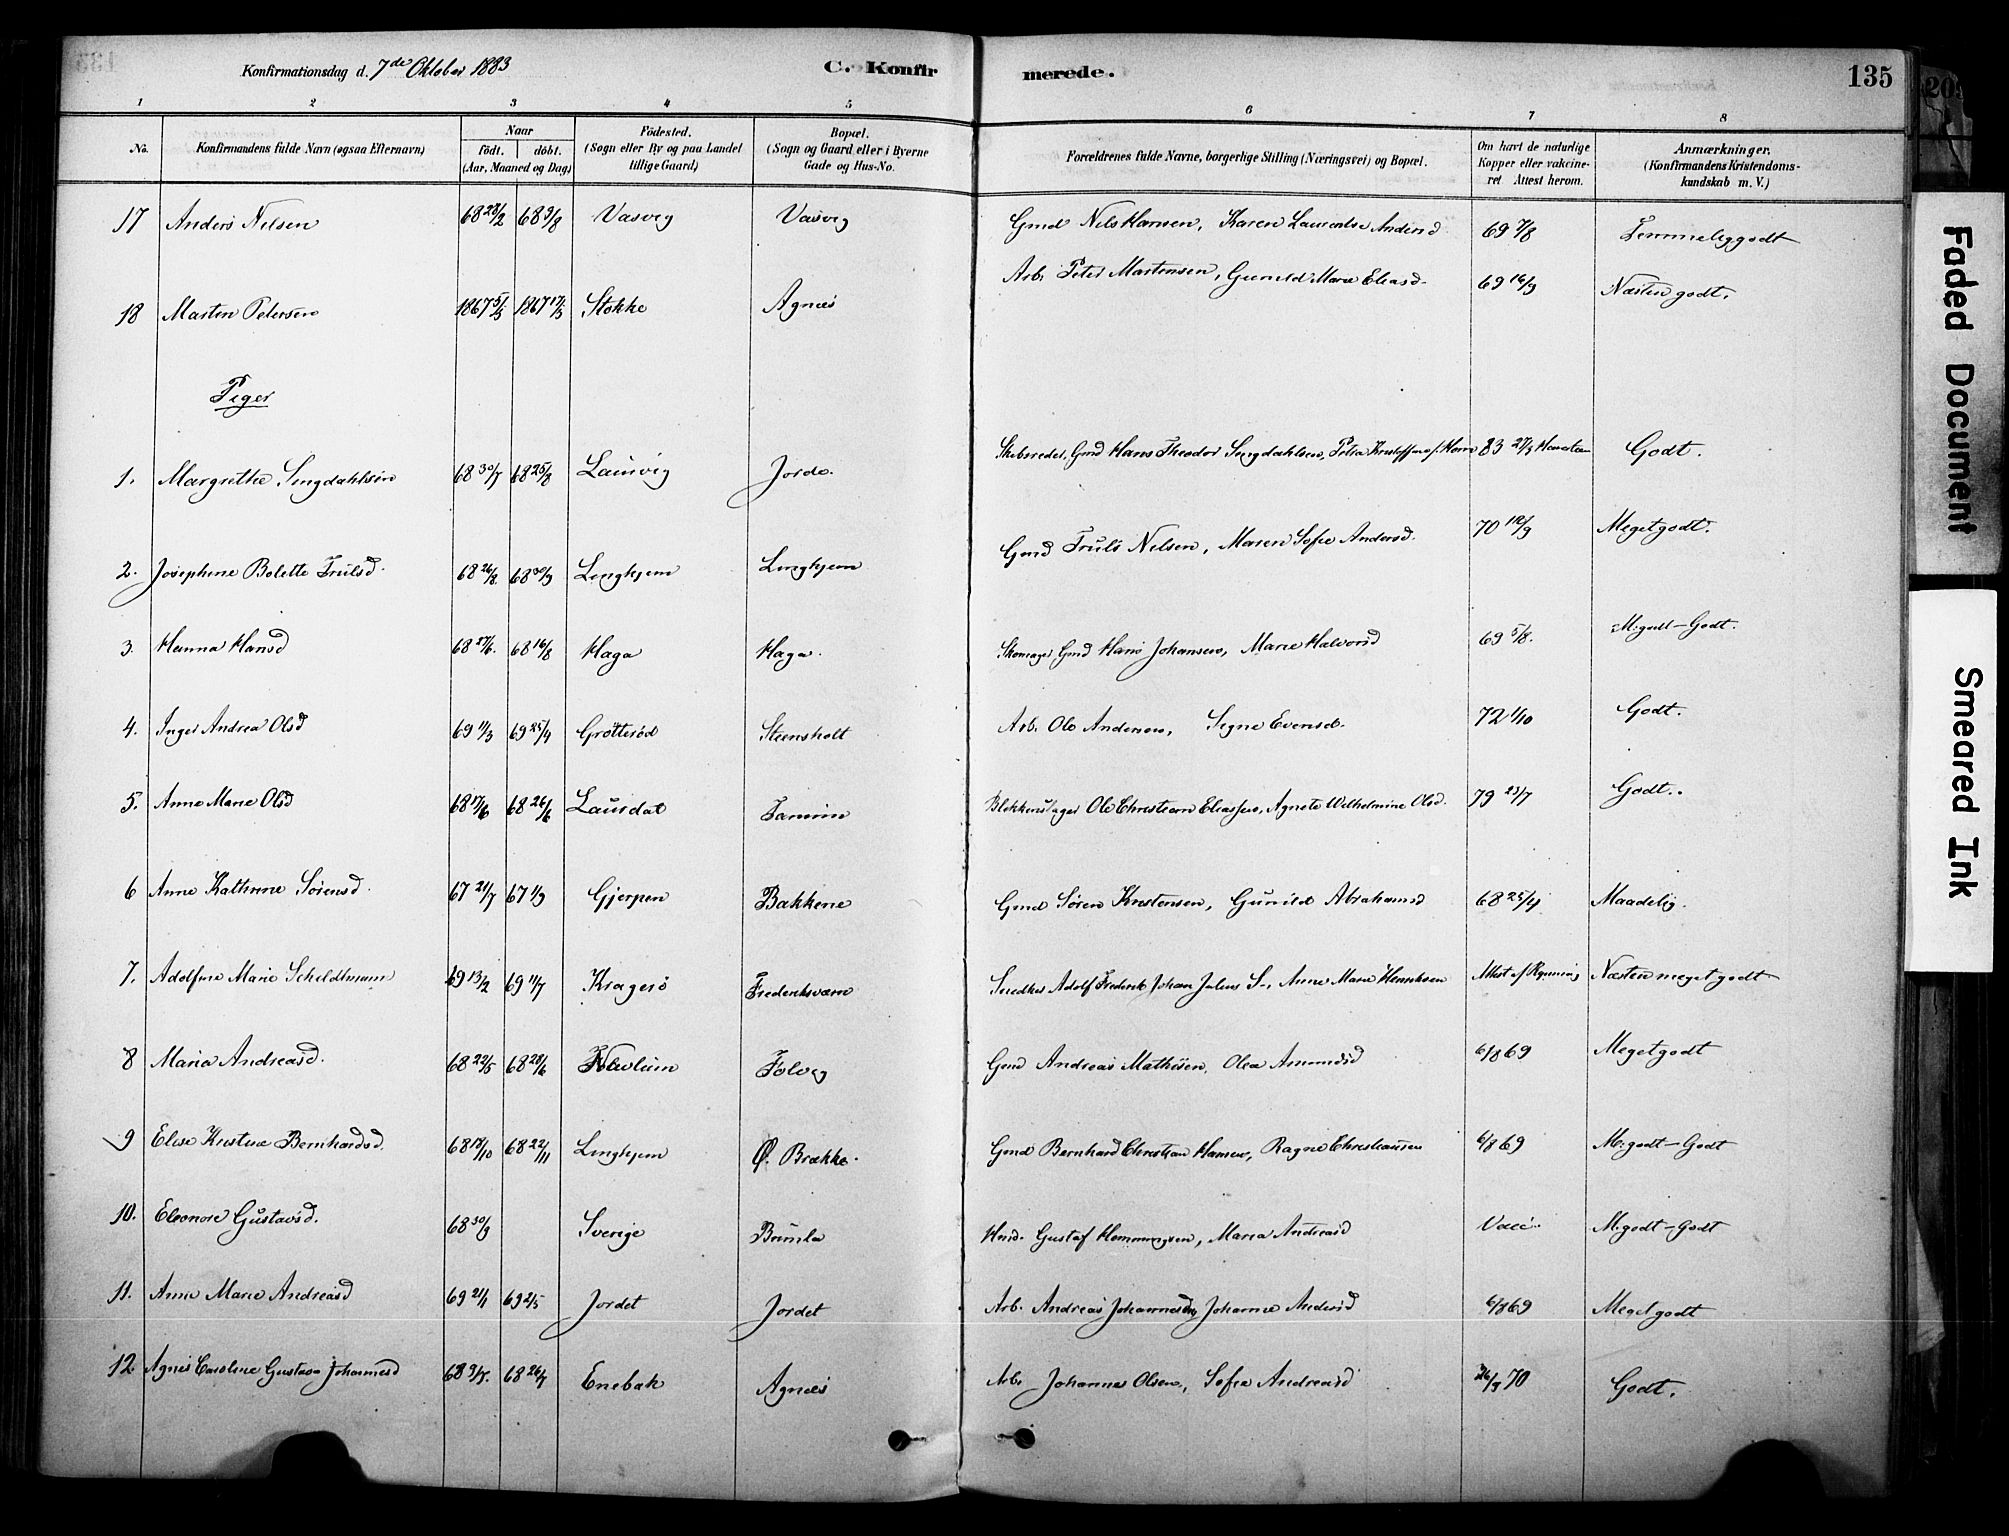 Konfirmationsdag d. 7de Oktober 1883
C. Konfirmerede.
135
1 2 3 4 5 6 7 8
No. Konfirmandens fulde Navn (ogsaa Efternavn) Naar födt. döbt. (Aar, Maaned og Dag) Födested. (Sogn eller By og paa Landet tillige Gaard) Bopæl. (Sogn og Gaard eller i Byerne Gade og Hus-No. Forældrenes fulde Navne, borgerlige Stilling (Næringsvei) og Bopæl. Om havt de naturlige Kopper eller vakcineret Attest herom. Anmærkninger. (Konfirmandens Kristendomskundskab m. V.)
17 Anders Nilsen 68 28/2 68 9/8 Vasvig Vasvig Gmd Nils Hansen, Karen Laurentse Andersd 69 7/8 Temmeliggodt
18 Marten Petersen 1867 5/3 1867 17/3 Stokke Agnæs Arb. Peter Martensen, Gunild Marie Eliasd. 69 16/9 Næsten godt.
Piger
1. Margrethe Singdahlsen 68 30/7 68 25/8 Laurvig Jorde. Skibsreder, Gmd Hans Theodor Singdahlsen, Petra Kristoffersen f. Horn 83 27/9 Godt.
2. Josephine Bolette Trulsd. 68 26/8 68 30/9 Linghjem Linghjem Gmd Truls Nilsen, Maren Sofie Andersd. 70 12/9 Megetgodt.
3. Hanna Hansd 68 27/6. 68 16/8 Haga Haga. Skomager, Gmd Hans Johansen, Marie Halvorsd 69 5/8. M.godt-Godt.
4. Inger Andrea Olsd 69 11/3 69 25/4 Grötteröd Steensholt Arb. Ole Andersen, Signe Evensd. 72 1/10 Godt.
5. Anne Marie Olsd 68 17/6 68 26/6 Laurdal Fammin Blikkenslager Ole Christian Eliassen, Agnete Wilhelmine Olsd. 79 23/7 Godt.
6 Anne Kathrine Sörensd. 67 21/7 67 1/9 Gjerpen Bakkene Gmd Sören Kristensen, Gunild Abrahamsd 68 25/4 Maadelig.
7. Adolfine Marie Scheldtmann 69 13/2 69 11/7 Kragerö Frederiksværn Snedker Adolf Frederik Johan Julius S., Anne Marie Henriksen Attest af Næsten megetgodt
8 Maria Andreasd. 68 22/5 68 28/6 Folvig Gmd Andreas Mathisen, Olea Amundsd 6/8 69 Megetgodt
9 Elise Kristine Bernhardsd. 68 18/10 68 22/11 Linghjem Ø. Brække. Gmd Bernhard Christian Hansen, Ragne Christiansen 6/8 69 M.godt-Godt
10. Eleonore Gustavsd. 68 30/9 Sverige Brunla Hmd. Gustaf Hemmingsen, Maria Andreasd Vacc. M.godt-Godt
11. Anne Marie Andreasd 69 21/1 69 2/5 Jordet Jordet Arb. Andreas Johannesen, Johanne Andersd 6/8 69 Megetgodt
12. Agnes Caroline Gustava Johannesd 68 3/7. 68 26/7 Enebak Agnæs Arb. Johannes Olsen, Sofie Andreasd 26/9 70 Godt.
Faded Document
Smeared Ink